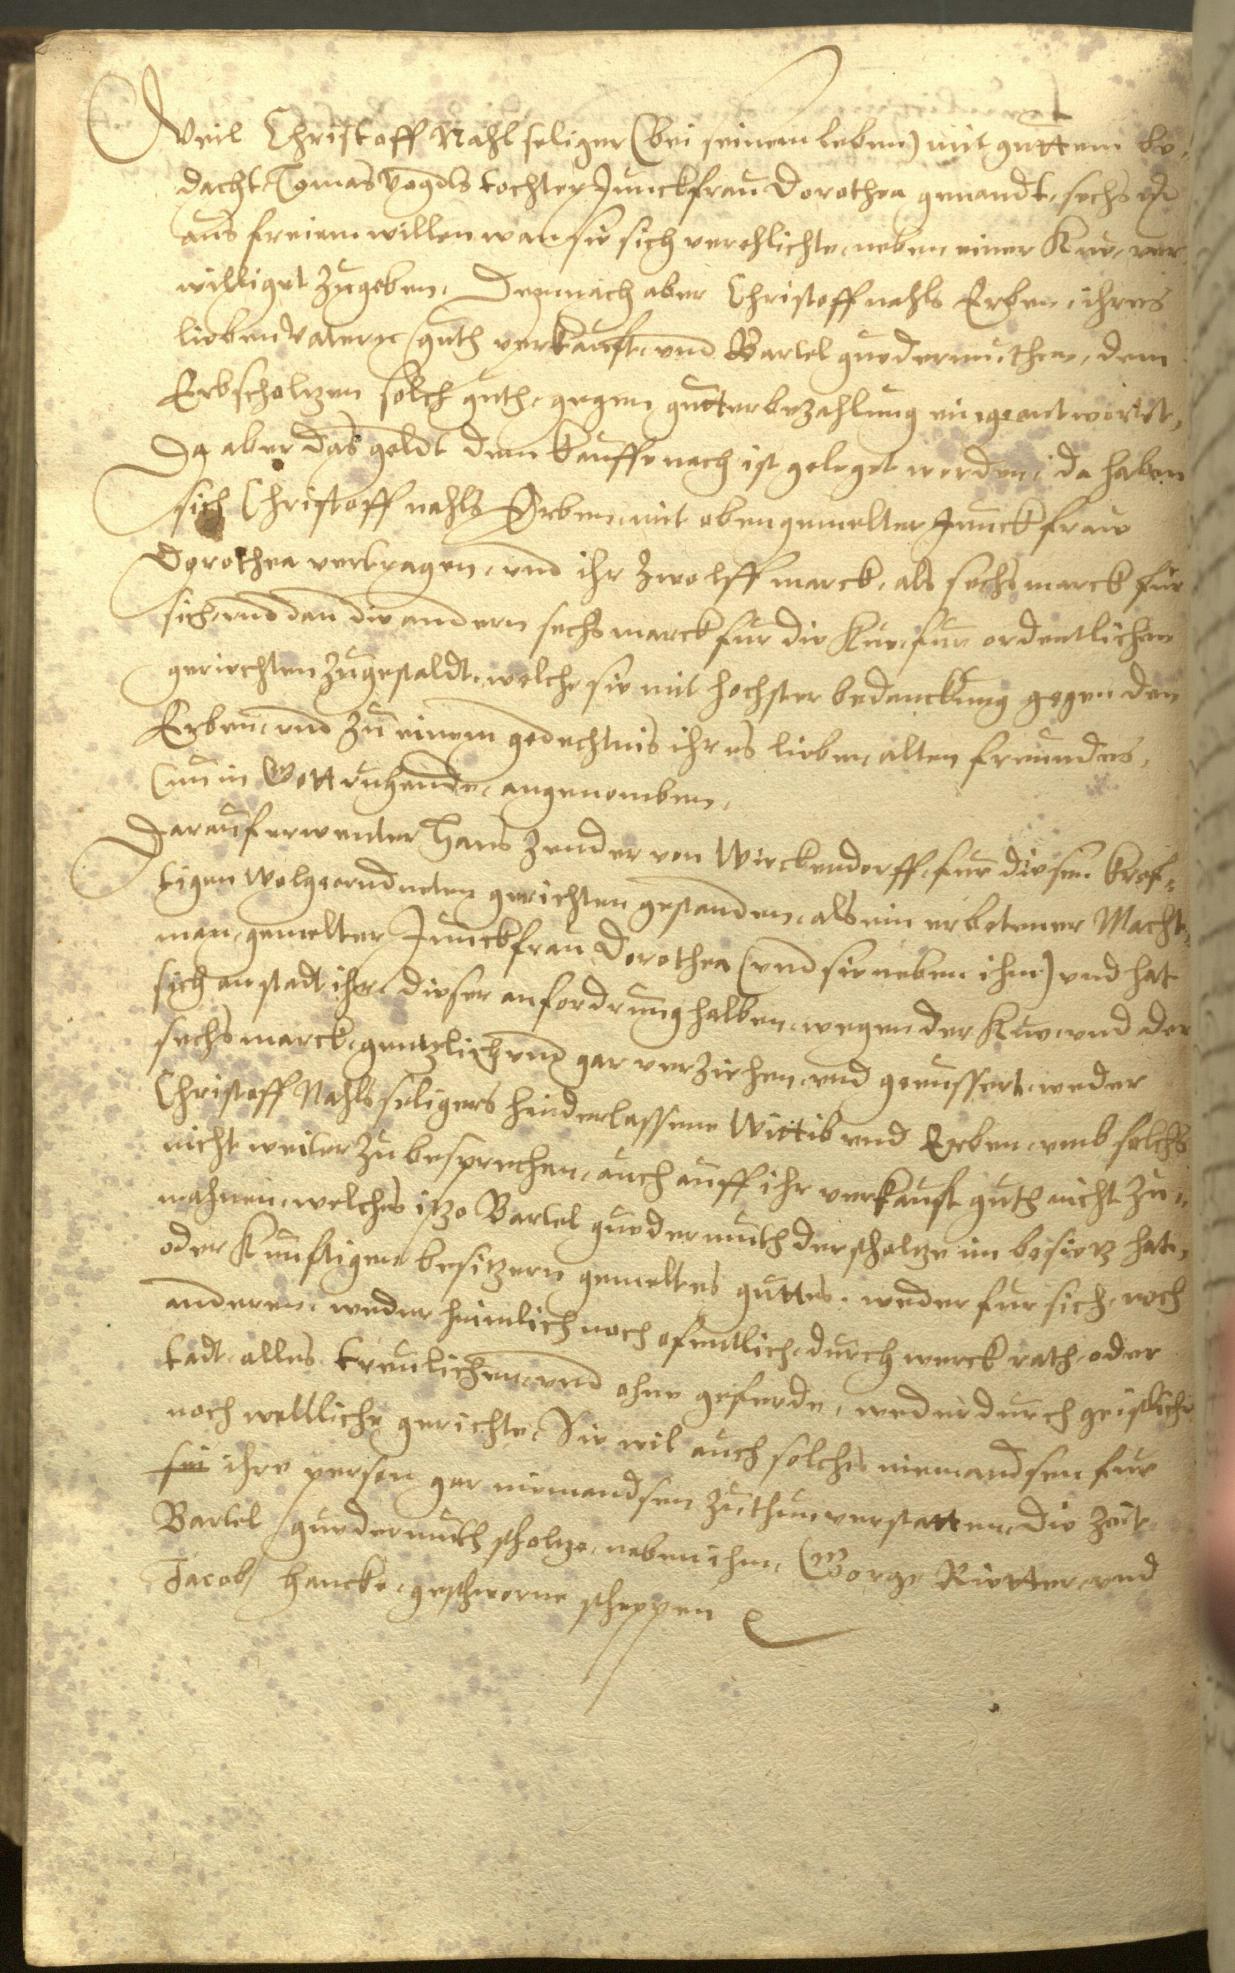 Weil Christoff Nahl seliger (bei seinem leben) mit guttem be-
dacht, Tomas Vogels tochter Junckfrau Dorothea genandt, sechs
aus freiem willen wan sie sich verehlichte, neben einer Kue, ver
williget zugeben. Demnach aber Christoff nahls Erben, ihres
lieben Vatern guth verkaufft, und Bartel guedermuthen, dem
Erbscholtzen solch guth, gegen gutter bezahlung eingeantwortet,
Da aber das geldt dem kauffe nach ist geleget worden, da haben
sich Christoff nahls Erben, mit oben gemelter Junckfraw
Dorothea vertragen, und ihr zwolff marck, als sechs marck für
sich, und dan die andern sechs marck für die Kue, für ordentlichen
geriechten zugestaldt, welche sie mit hochster bedanckung gegen den
Erben, und zu einem gedechtnis ihres lieben alten freundes,
(nu in Gott ruhende, angenomben.
Darauf Hans Zender von Wirckendorff, für diesen kref-
tigen wolgeorndneten gerichten gestanden, als ein erbetener Macht-
man, gemelter Junckfrau Dorothea (und sie neben ihm) und hat
sich anstadt ihr, dieser anfordrung halben, wegen der Kue, und der
sechs marck, gentzlich und gar verziehen, und geeussert, weder
Christoff Nahls seligers hinderlassene Wittib und Erben, umb solchs
nicht weiter zu besprechen, auch auff ihr verkauft guth nicht zu-
mahnen, welches itzo Bartel guedermuth der scholtze im besietz hat,
oder Künftigen besitzern gemeltes guttes, weder fur sich, noch
anderen, weder heimlich noch ofentlich, durch werck rath, oder
tadt, alles treulichen, und ohne geferde, weder durch geistliche
noch weltliche gerichte, Sie wil auch solches niemandsen fur
sei ihre person gar niemandsen zuthun verstatten, die zeit
Bartel guedermuth scholtze, neben ihm, George Rietter, und
Jacob Hancke, geschworne scheppen